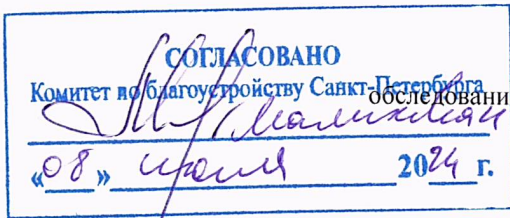 СОГЛАСОВАНО
Комитет по благоустройству Санкт-Петербурга
обследовани
«08» июля 2024 г.